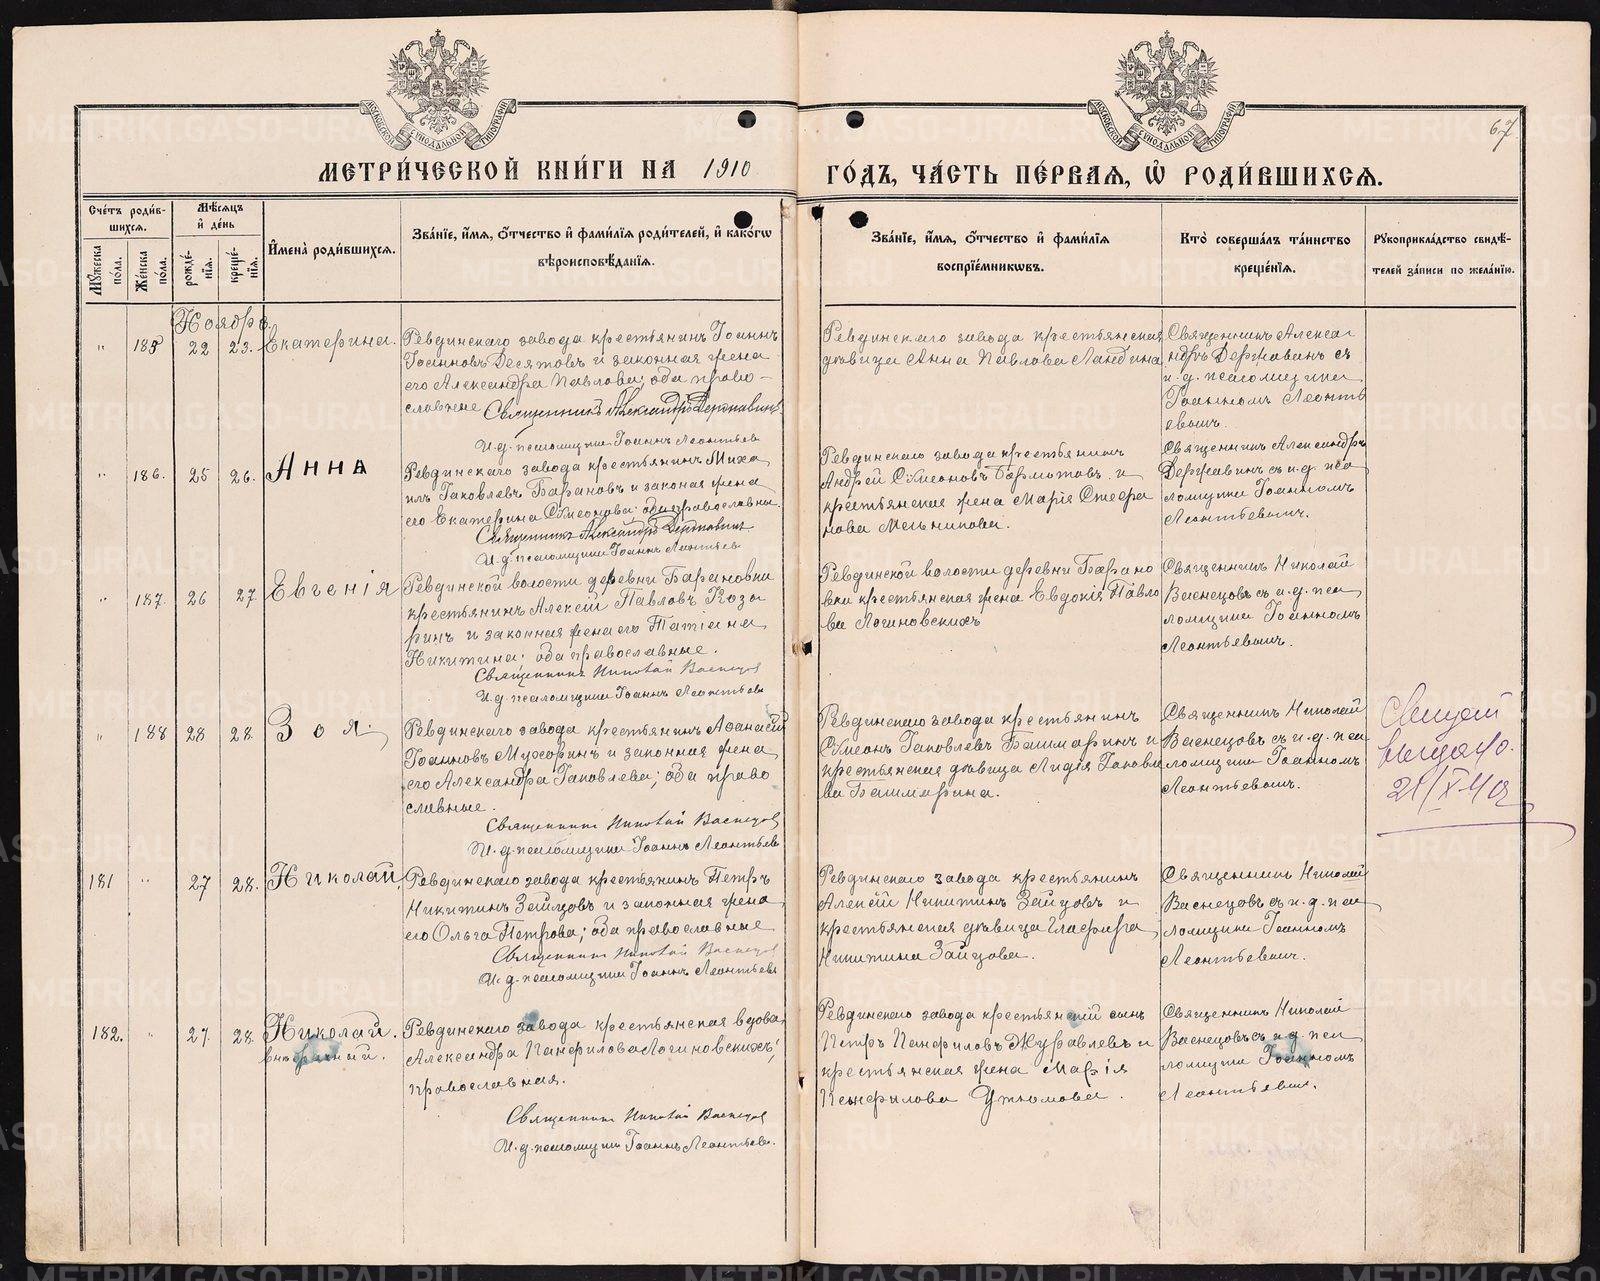 МОСКОВСКОЙ СИНОДАЛЬНОЙ ТИПОГРАФІИ
МОСКОВСКОЙ СИНОДАЛЬНОЙ ТИПОГРАФІИ
67
МЕТРИ́ЧЕСКОЙ КНИ́ГИ НА 1910 ГО́ДЪ, ЧА́СТЬ ПЕ́РВАЯ, Ѡ҆ РОДИ́ВШИХСѦ.
Сче́тъ роди́в-
шихся.
Мꙋжеска по́ла.
Же́нска по́ла.
Мѣ́сяцъ
и҆ де́нь
рожде́-
нія.
креще́-
нія.
И҆мена̀ роди́вшихся.
Зва́нїе, и҆́мя, ѻ҆́тчество и҆ фами́лїя роди́телей, и҆ како́гѡ
вѣроисповѣ́данїя.
Зва́нїе, и҆́мя, ѻ҆́тчество и҆ фами́лїя
воспрїе́мникѡвъ.
Кто̀ соверша́лъ та́инство
креще́нїя.
Рꙋкоприкла́дство свидѣ́-
телей за́писи по жела́нїю.
Ноябрь
" 185 22 23. Екатерина.
Ревдинскаго завода крестьянинъ Іоаннъ
Іоанновъ Десятовъ и законная жена
его Александра Павлова; оба право-
славные Священникъ Александръ Державинъ
И. д. псаломщика Іоаннъ Леонтьевъ
Ревдинскаго завода крестьянская
дѣвица Анна Павлова Ландина
Священникъ Алекса-
ндръ Державинъ съ
и. д. псаломщика
Іоанномъ Леонть
евымъ.
" 186. 25 26. Анна
Ревдинскаго завода крестьянинъ Миха
илъ Іаковлевъ Барановъ и законая жена
его Екатерина Сѵмеонова; оба православные.
Священникъ Александръ Державинъ
И. д. псаломщика Іоаннъ Леонтьев
Ревдинскаго завода крестьянинъ
Андрей Сѵмеоновъ Бормотовъ и
крестьянская жена Марія Спефа
нова Мельникова.
Священникъ Александръ
Державинъ съ и. д. пса
ломщика Іоанномъ
Леонтьевымъ.
" 187. 26 27 Евгенія
Ревдинской волости деревни Барановки
крестьянинъ Алексій Павловъ Коза
ринъ и законная жена его Татіана
Никитина; оба православные.
Священникъ Николай Васнецов
И. д. псаломщика Іоаннъ Леонтьевъ
Ревдинской волости деревни Барано
вки крестьянская жена Евдокія Павло
ва Логиновскихъ
Священникъ Николай
Васнецовъ съ и. д. пса
ломщика Іоанномъ
Леонтьевымъ.
" 188 28 28. Зоя.
Ревдинскаго завода крестьянинъ Афанасій
Іоанновъ Мусоринъ и законная жена
его Александра Іаковлева; оба право
славные.
Священникъ Николай Васнецов
И. д. псаломщика Іоаннъ Леонтьев
Ревдинскаго завода крестьянинъ
Сѵмеонъ Іаковлевъ Башмаринъ и
крестьянская дѣвица Лидія Іаковле
ва Башмарина.
Священникъ Николай
Васнецовъ съ и. д. пса
ломщика Іоанномъ
Леонтьевымъ.
выдано.
21/X-41 г.
181 " 27 28. Николай.
Ревдинскаго завода крестьянинъ Петръ
Никитинъ Зайцовъ и законная жена
его Ольга Петрова; оба православные
Священникъ Николай Васнецов
И. д. псаломщика Іоаннъ Леонтьевъ
Ревдинскаго завода крестьянинъ
Алексій Никитинъ Зайцовъ и
крестьянская дѣвица Глафира
Никитина Зайцова.
Священникъ Николай
Васнецовъ съ и. д. пса
ломщика Іоанномъ
Леонтьевым.
182. " 27. 28. Николай.
внебрачный.
Ревдинскаго завода крестьянская вдова
Александра Панфилова Логиновскихъ;
православная.
Священникъ Николай Васнецов
И. д. псаломщика Іоаннъ Леонтьевъ.
Ревдинскаго завода крестьянскій сынъ
Петръ Панфиловъ Журавлевъ и
крестьянская жена Марія
Панфилова Утюмова.
Священникъ Николай
Васнецовъ съ и. д. пса
ломщика Іоанномъ
Леонтьевым.
METRIKI.GASO-URAL.RU